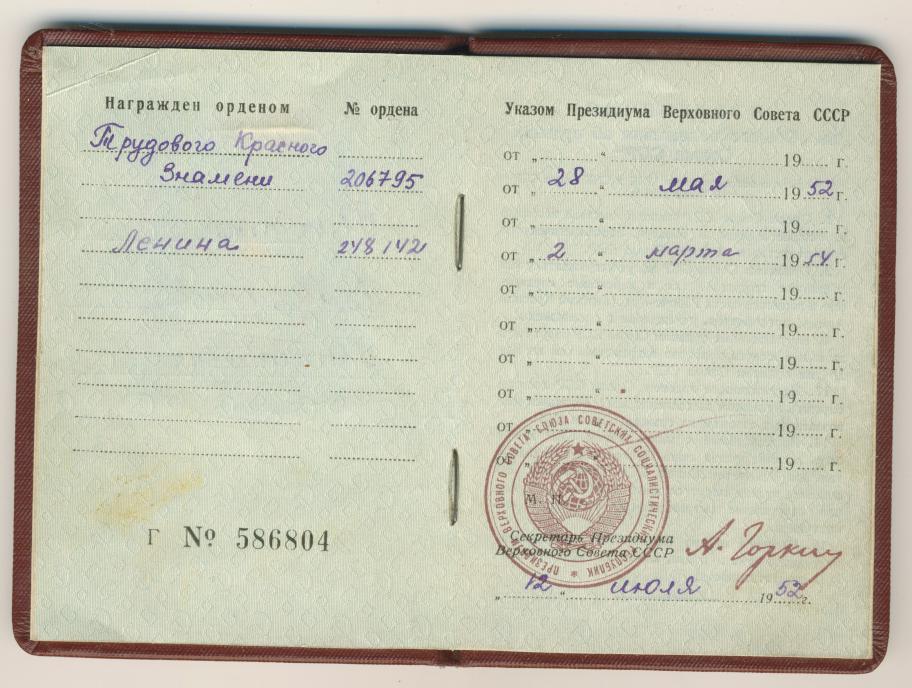 Награжден орденом
№ ордена
Трудового Красного
Знамени 206795
Ленина 248142
Г № 586804
Указом Президиума Верховного Совета СССР
от „ “ 19 г.
от „ 28 “ мая 1952 г.
от „ “ 19 г.
от „ 2 “ марта 1954 г.
от „ “ 19 г.
от „ “ 19 г.
от „ “ 19 г.
от „ “ 19 г.
от „ “ 19 г.
от „ “ 19 г.
М. П.
Секретарь Президиума
Верховного Совета СССР
А. Горкин
„ 12 “ июля 1952 г.
ВЕРХОВНОГО СОВЕТА СОЮЗА СОВЕТСКИХ СОЦИАЛИСТИЧЕСКИХ